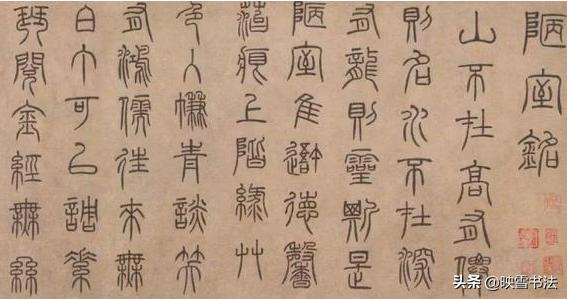 陋室銘
山不在高有僊
則名水不在深
有龍則靈斯是
陋室隹吾德馨
菭痕上階綠艸
色入㡘青談笑
有鴻儒往來無
白丁可以調素
琴閱金經無絲
头条 @映雪书法